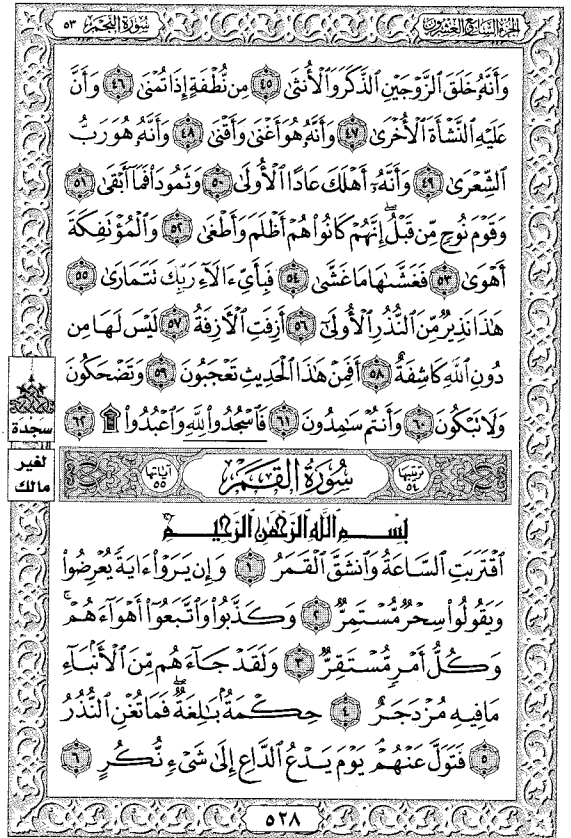 سورة النجم ٥٣
الجزء السابع والعشرون
وَأَنَّهُۥ خَلَقَ ٱلزَّوْجَيْنِ ٱلذَّكَرَ وَٱلْأُنثَىٰ ٤٥ مِن نُّطْفَةٍ إِذَا تُمْنَىٰ ٤٦ وَأَنَّ
عَلَيْهِ ٱلنَّشْأَةَ ٱلْأُخْرَىٰ ٤٧ وَأَنَّهُۥ هُوَ أَغْنَىٰ وَأَقْنَىٰ ٤٨ وَأَنَّهُۥ هُوَ رَبُّ
ٱلشِّعْرَىٰ ٤٩ وَأَنَّهُۥٓ أَهْلَكَ عَادًا ٱلْأُولَىٰ ٥٠ وَثَمُودَا۟ فَمَآ أَبْقَىٰ ٥١
وَقَوْمَ نُوحٍ مِّن قَبْلُ ۖ إِنَّهُمْ كَانُوا۟ هُمْ أَظْلَمَ وَأَطْغَىٰ ٥٢ وَٱلْمُؤْتَفِكَةَ
أَهْوَىٰ ٥٣ فَغَشَّىٰهَا مَا غَشَّىٰ ٥٤ فَبِأَىِّ ءَالَآءِ رَبِّكَ تَتَمَارَىٰ ٥٥
هَٰذَا نَذِيرٌ مِّنَ ٱلنُّذُرِ ٱلْأُولَىٰٓ ٥٦ أَزِفَتِ ٱلْءَازِفَةُ ٥٧ لَيْسَ لَهَا مِن
دُونِ ٱللَّهِ كَاشِفَةٌ ٥٨ أَفَمِنْ هَٰذَا ٱلْحَدِيثِ تَعْجَبُونَ ٥٩ وَتَضْحَكُونَ
وَلَا تَبْكُونَ ٦٠ وَأَنتُمْ سَٰمِدُونَ ٦١ فَٱسْجُدُوا۟ لِلَّهِ وَٱعْبُدُوا۟ ۩ ٦٢
سجدة
لغير
مالك
ترتيبها ٥٤ سُورَةُ القَمَر آياتها ٥٥
بِسْمِ ٱللَّهِ ٱلرَّحْمَٰنِ ٱلرَّحِيمِ
ٱقْتَرَبَتِ ٱلسَّاعَةُ وَٱنشَقَّ ٱلْقَمَرُ ١ وَإِن يَرَوْا۟ ءَايَةً يُعْرِضُوا۟
وَيَقُولُوا۟ سِحْرٌ مُّسْتَمِرٌّ ٢ وَكَذَّبُوا۟ وَٱتَّبَعُوٓا۟ أَهْوَآءَهُمْ ۚ
وَكُلُّ أَمْرٍ مُّسْتَقِرٌّ ٣ وَلَقَدْ جَآءَهُم مِّنَ ٱلْأَنۢبَآءِ
مَا فِيهِ مُزْدَجَرٌ ٤ حِكْمَةٌۢ بَٰلِغَةٌ ۖ فَمَا تُغْنِ ٱلنُّذُرُ
٥ فَتَوَلَّ عَنْهُمْ ۘ يَوْمَ يَدْعُ ٱلدَّاعِ إِلَىٰ شَىْءٍ نُّكُرٍ ٦
٥٢٨